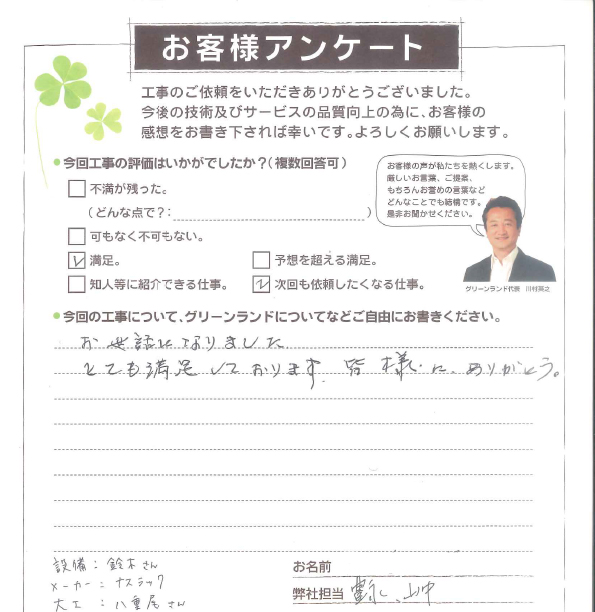 お客様アンケート
工事のご依頼をいただきありがとうございました。
今後の技術及びサービスの品質向上の為に、お客様の
感想をお書き下されば幸いです。よろしくお願いします。
●今回工事の評価はいかがでしたか?(複数回答可)
不満が残った。
(どんな点で?: )
可もなく不可もない。
満足。
予想を超える満足。
知人等に紹介できる仕事。
次回も依頼したくなる仕事。
お客様の声が私たちを熱くします。
厳しいお言葉、ご提案、
もちろんお誉めの言葉など
どんなことでも結構です。
是非お聞かせください。
グリーンランド代表 川村英之
●今回の工事について、グリーンランドについてなどご自由にお書きください。
お世話になりました
とても満足しております。皆様に、ありがとう。
設備:鈴木さん
メーカー:ナスラック
大工:八重尾さん
お名前
弊社担当